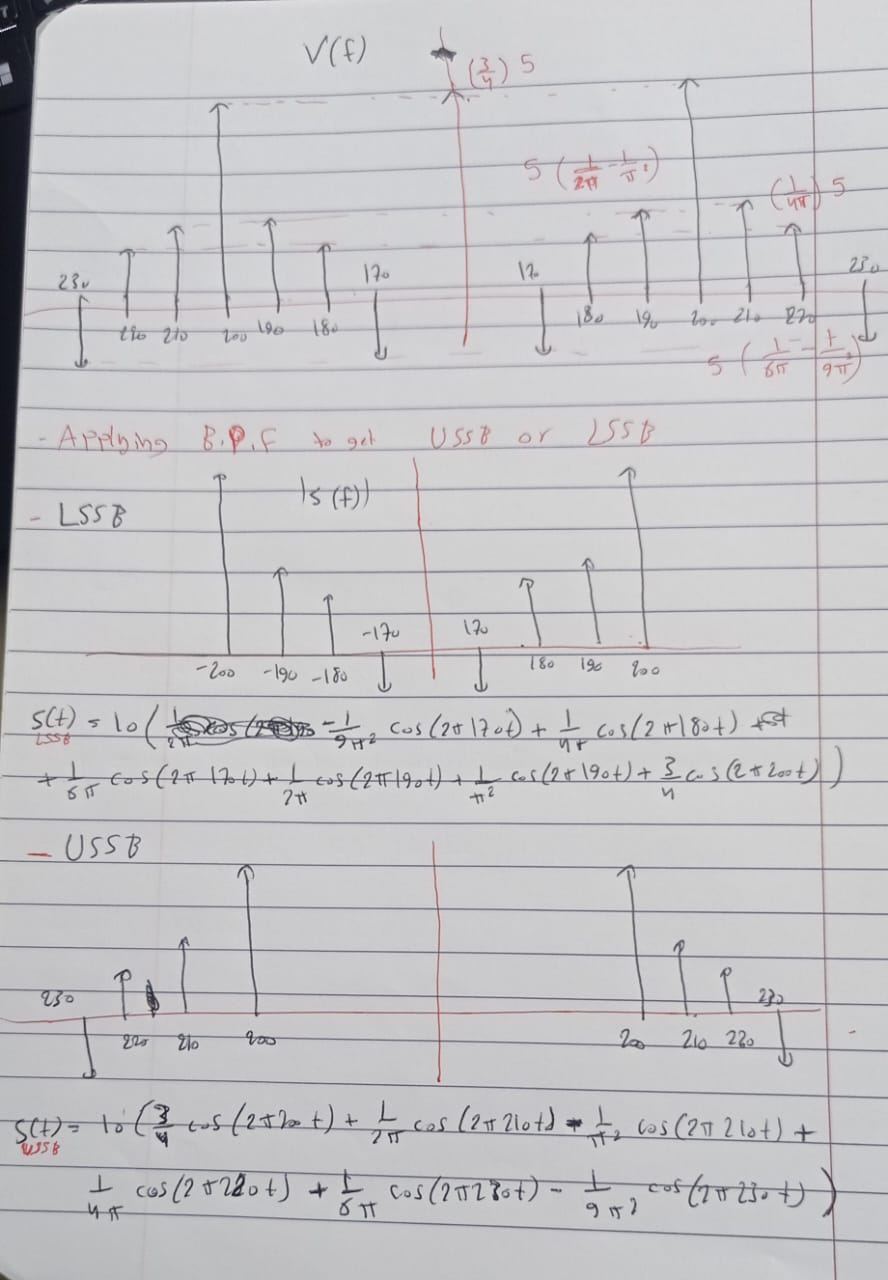 V(f)
(3/4) 5
5 (1/2π - 1/π²)
(1/4π) 5
230 220 210 200 190 180 170 170 180 190 200 210 220 230
5 (1/6π - 1/9π²)
- Applying B.P.F to get USSB or LSSB
- LSSB
|S(f)|
-200 -190 -180 -170 170 180 190 200
S(t) = 10 ( -1/9π² cos(2π170t) + 1/4π cos(2π180t)
LSSB
+ 1/6π cos(2π170t) + 1/2π cos(2π190t) + 1/π² cos(2π190t) + 3/4 cos(2π200t) )
- USSB
230 220 210 200 200 210 220 230
S(t) = 10 ( 3/4 cos(2π200t) + 1/2π cos(2π210t) - 1/π² cos(2π210t) +
USSB
1/4π cos(2π220t) + 1/6π cos(2π230t) - 1/9π² cos(2π230t) )